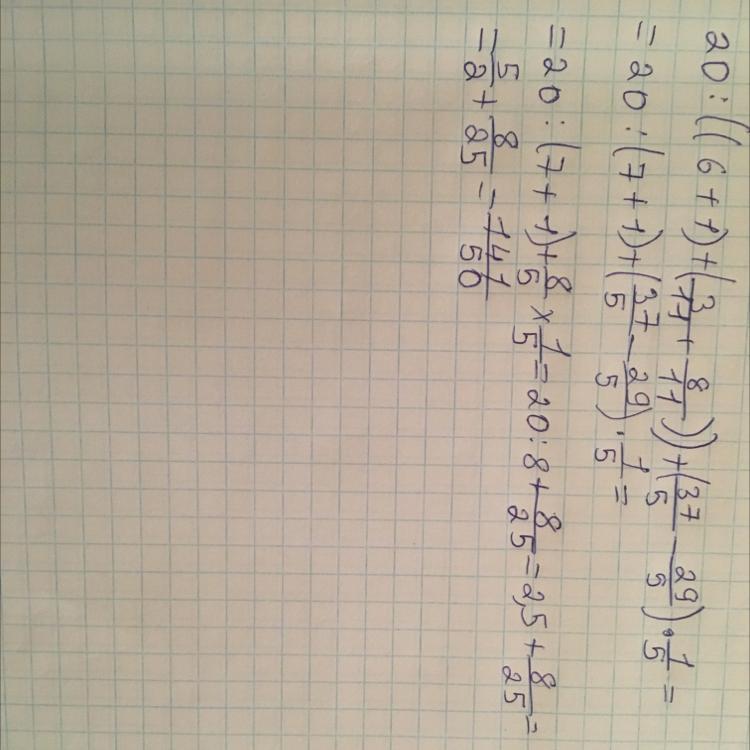 20:((6+1)+(3/11+8/11))+(37/5-29/5)·1/5=
=20:(7+1)+(37/5-29/5)·1/5=
=20:(7+1)+8/5×1/5=20:8+8/25=2,5+8/25=
=5/2+8/25=141/50